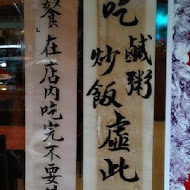 吃鹹粥炒飯虛此
餐在店內吃完不要